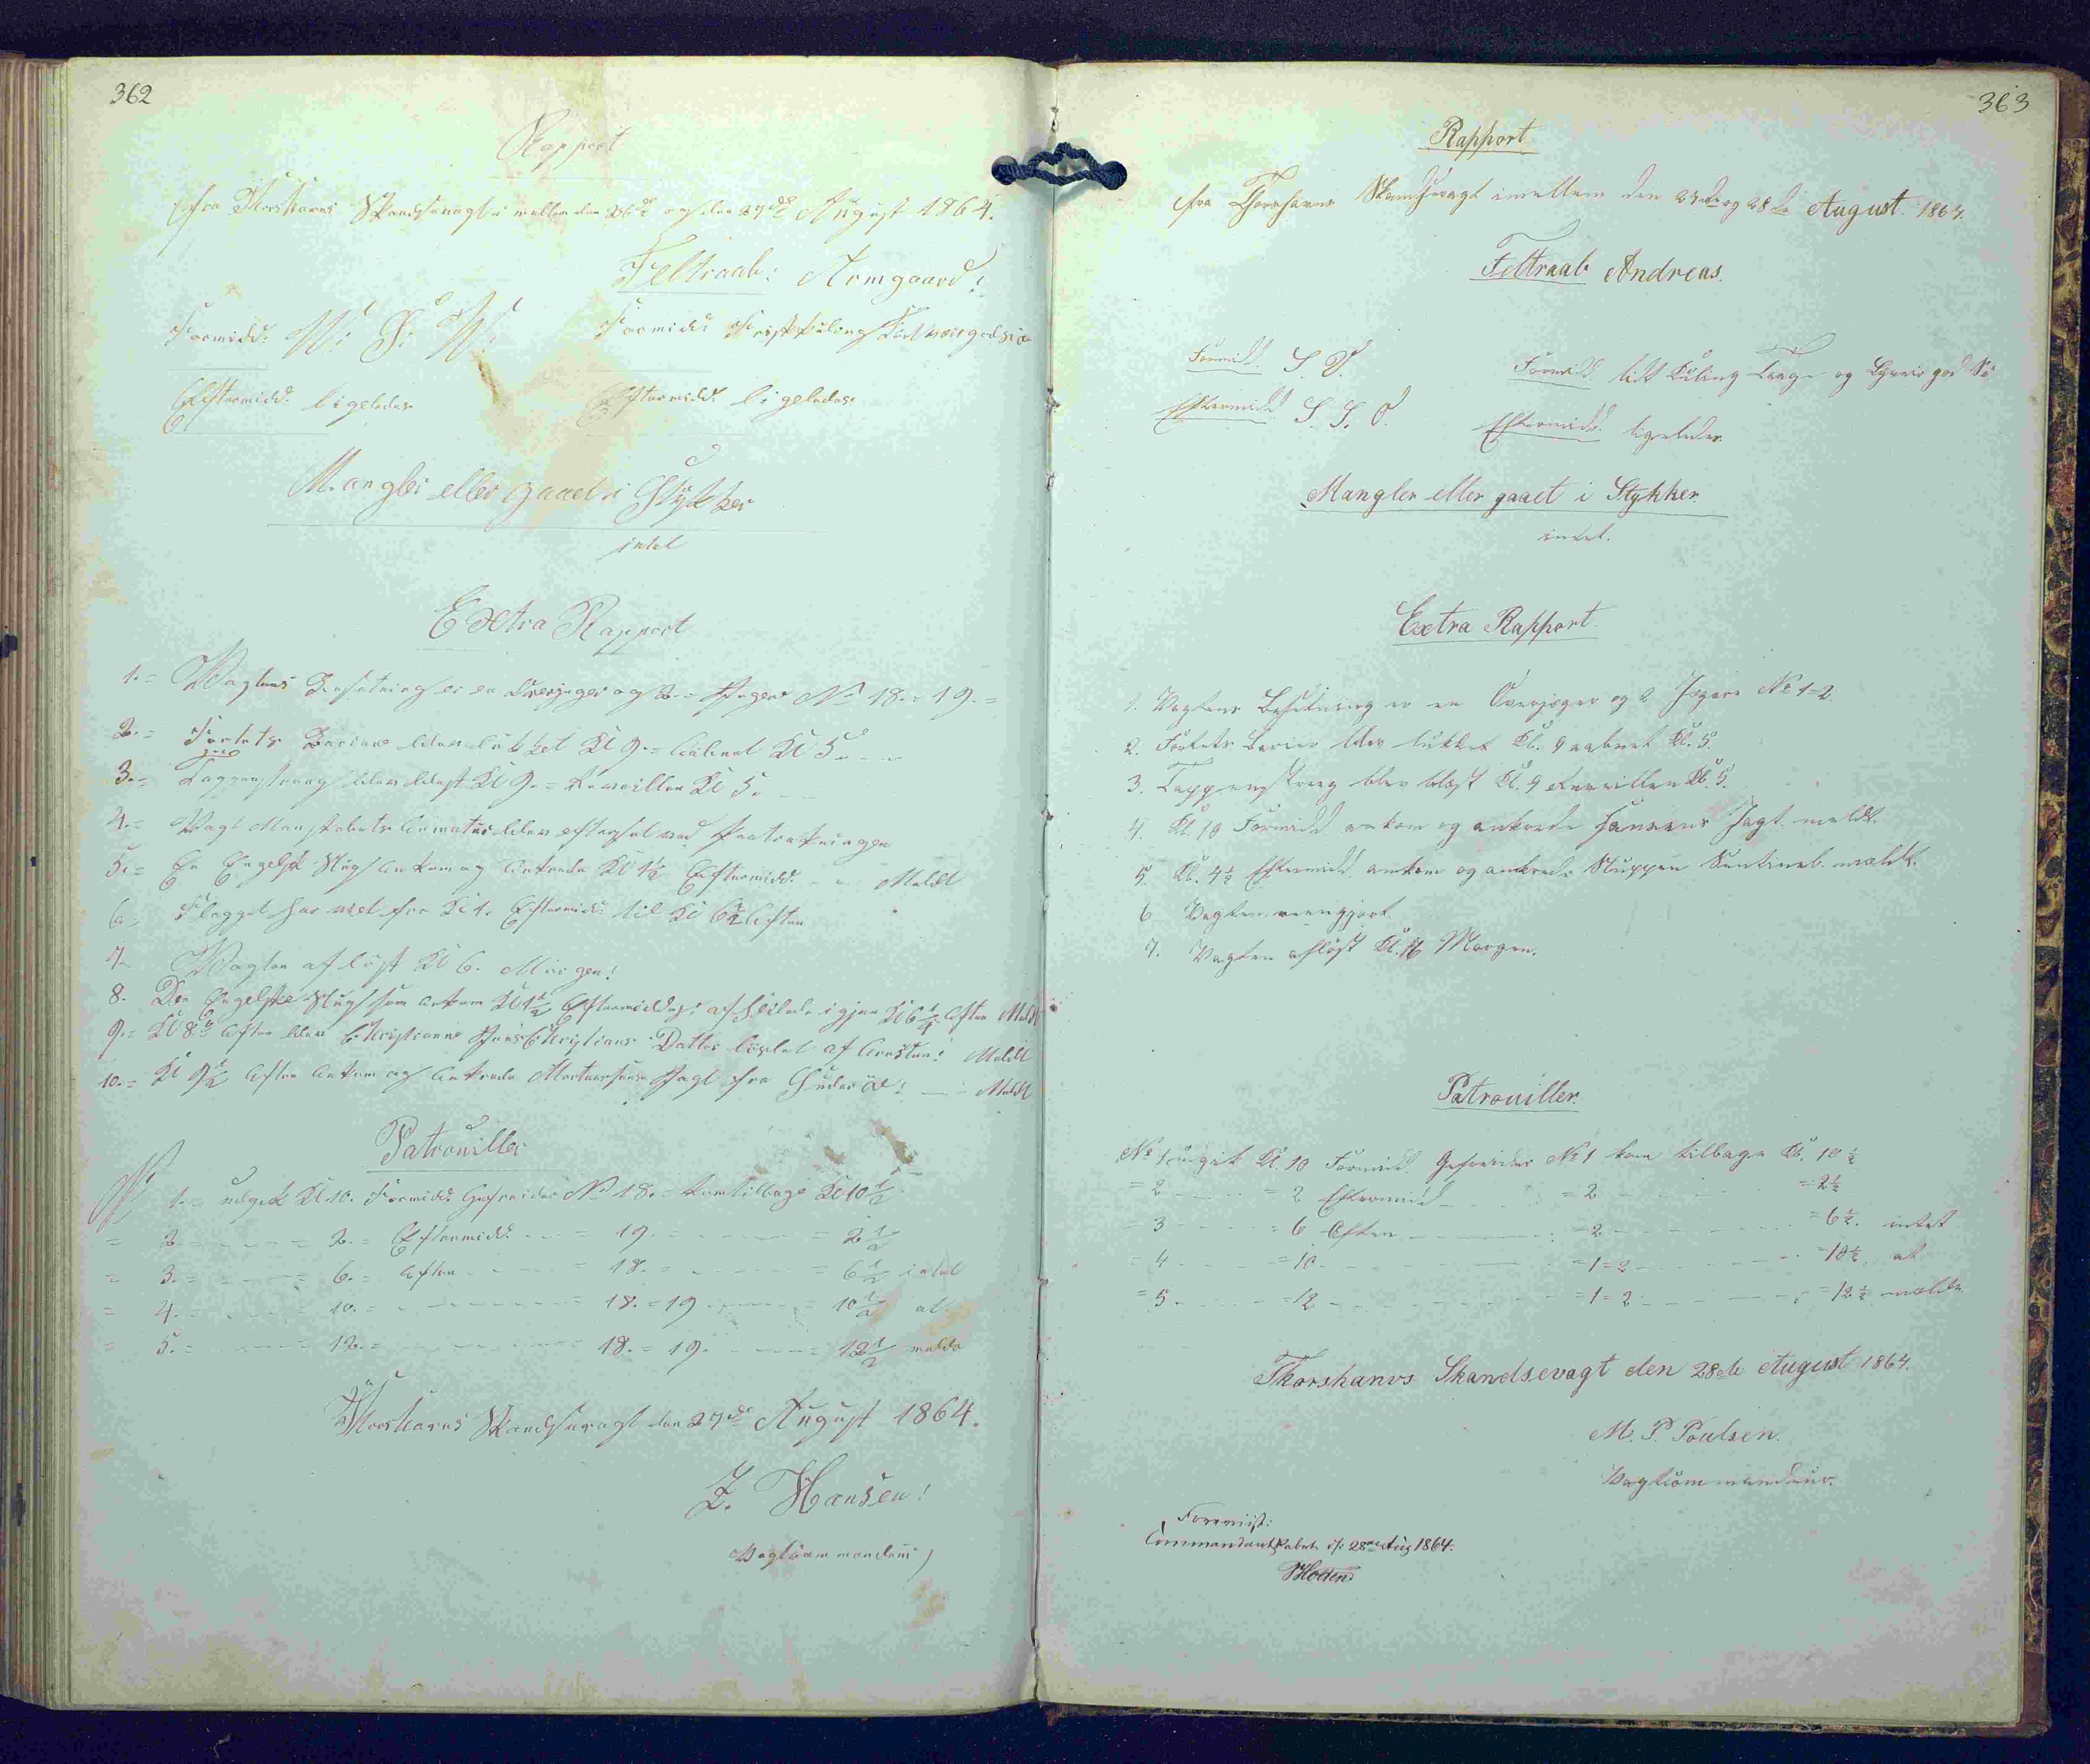 362
Rapport
fra Thorshavns Skandsevagt imellem den 26de og den 27de August 1864.
Feltraab: Armgaard!
Formidd: N: S: W: Formidd: frisk Kuling Luft
Eftermidd: ligeledes Eftermidd ligeledes
Mangler eller gaaet i Stykker
intet
Extra Rapport
1.= Vagtens Besætning er en Overjæger og 2.= Jægere No 18.= 19.=
2.= Fortets Barriere blev lukket Kl 9.= aabnet Kl 5.
3.= Tappenstræg blev blæst Kl 9.= Reveillen Kl 5.
4.= Vagt Mandskabets Armatur blev efterseet ved Fratrædningen
5.= En Engelsk Slup ankom og ankrede Kl 1½ Eftermidd. Meldt
6= Flagget har vejet fra Kl 1. Eftermidd: til Kl 6½ Aften
7. Vagten afløst Kl 6. Morgen!
8. Den Engelske Slup som ankom Kl 1½ Eftermiddag: afseilede igjen Kl 6¼ Aften Meldt
9.= Kl 8 Aften blev Christianne Datter løsladt af Arresten! Meldt
10.= Kl 9½ Aften ankom og ankrede Mortensens Jagt fra Suderöe: Meldt
Patrouiller
No 1.= udgik Kl 10. Formidd: Gefreider No 18.= kom tilbage Kl 10½
= 2 = 2.= Eftermidd. = 19. = 2½
= 3.= = 6.= Aften = 18.= = 6½ intet
= 4. 10.= = 18.=19 = 10½ at
= 5.= = 12.= 18.= 19. = 12½ melde
Thorshavns Skandsevagt den 27de August 1864.
Z. Hansen!
Vagtcommandeur
363
Rapport
fra Thorshavns Skandsevagt imellem den 27de og 28de August 1864.
Feltraab Andreas.
Formidd. S. O. Formidd. lidt Kuling Taage og
Eftermidd. S. S. O. Eftermidd. ligeledes.
Mangler eller gaaet i Stykker
intet.
Extra Rapport.
1. Vagtens Besætning er en Overjæger og 2 Jægere No 1=2.
2. Fortets Barier blev lukket Kl. 9 aabnet Kl. 5.
3. Tappenstræg blev blæst Kl. 9 Reveillen Kl. 5.
4. Kl. 10 Formidd. ankom og ankrede Hansens Jagt meldt.
5. Kl. 4½ Eftermidd. ankom og ankrede Sluppen meldt.
6 Vagten reengjort.
7. Vagten afløst Kl. 6 Morgen.
Patrouiller.
No 1 udgik Kl. 10 Formidd. Gefreider No 1 kom tilbage Kl. 10½
= 2 = 2 Eftermidd = 2 = 2½
= 3 = 6 Aften = 2 = 6½. intet
= 4 = 10. = 1=2 = 10½. at
= 5. = 12 = 1=2 = 12½ melde
Thorshavns Skandsevagt den 28de August 1864.
M. P. Poulsen.
Vagtcommandeur.
Foreviist:
Commandantskabet d/: 28de Aug 1864.